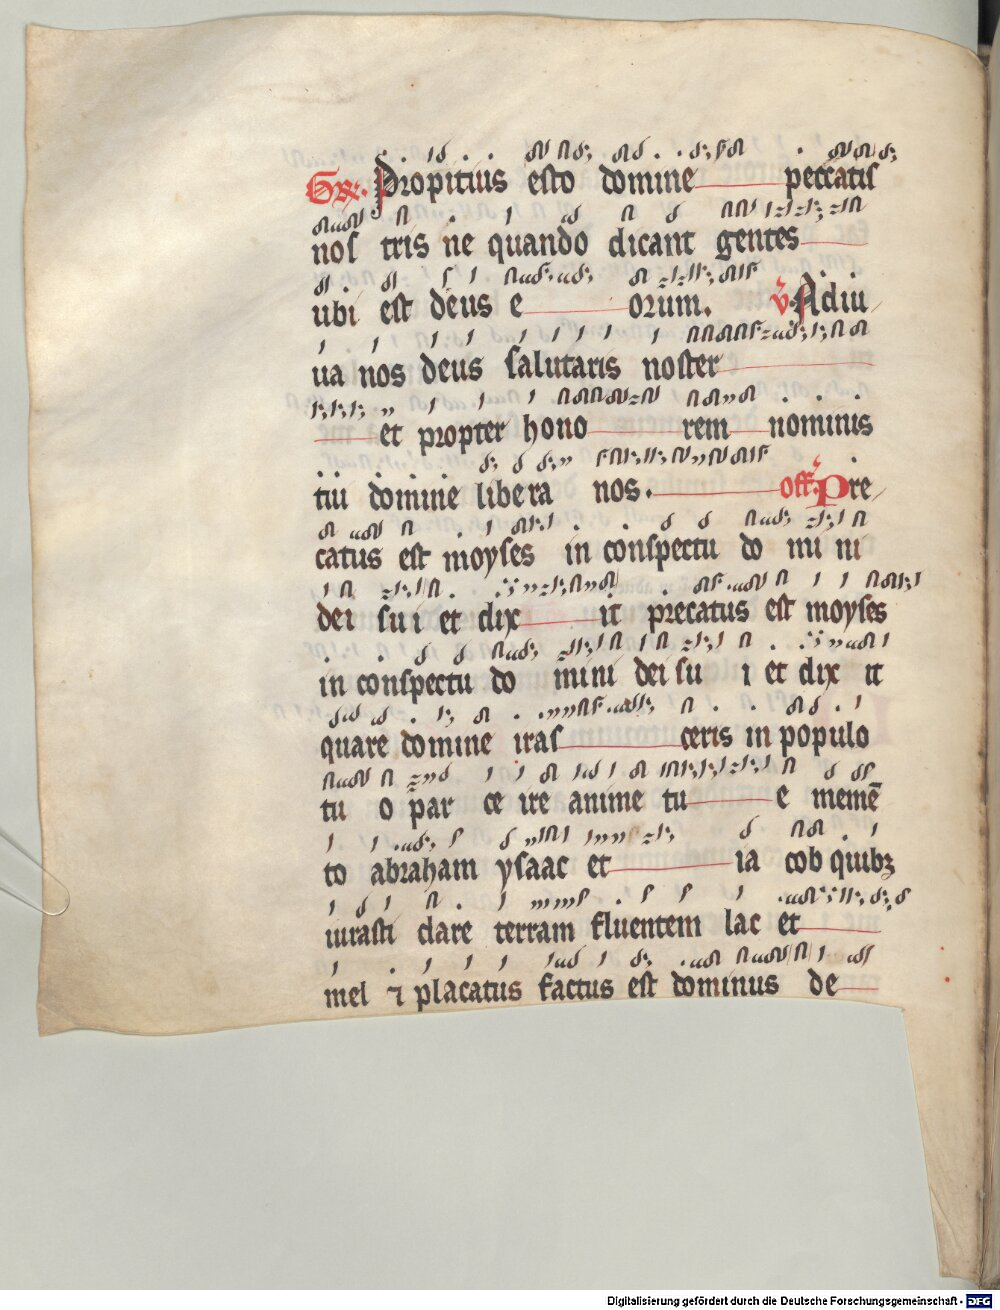 Gr. Propitius esto domine peccatis
nos tris ne quando dicant gentes
ubi est deus e orum. V. Adiu
ua nos deus salutaris noster
et propter hono rem nominis
tui domine libera nos. off. Pre
catus est moyses in conspectu do mi ni
dei su i et dix it precatus est moyses
in conspectu do mini dei su i et dix it
quare domine iras ceris in populo
tu o par ce ire anime tu e memē
to abraham ysaac et ia cob quibꝫ
iurasti dare terram fluentem lac et
mel ⁊ placatus factus est dominus de
Digitalisierung gefördert durch die Deutsche Forschungsgemeinschaft - DFG